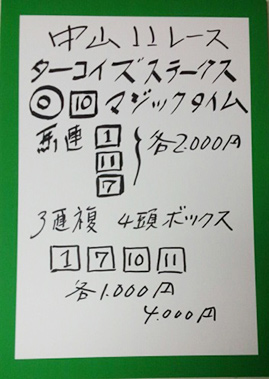 中山11レース
ターコイズステークス
◎ 10 マジックタイム
馬連 1 各2.000円
11
7
3連複 4頭ボックス
1 7 10 11
各1.000円
4.000円